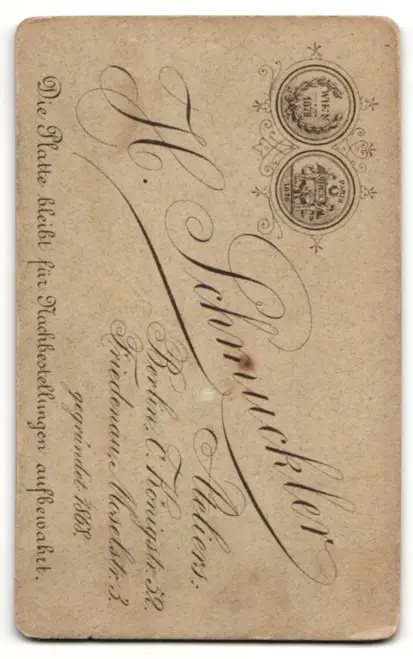 WIEN
1873
PARIS
H. Schmuckler
Ateliers:
Berlin, C. Königstr. 50.
Friedenau, Moselstr. 3.
gegründet 1868.
Die Platte bleibt für Nachbestellungen aufbewahrt.